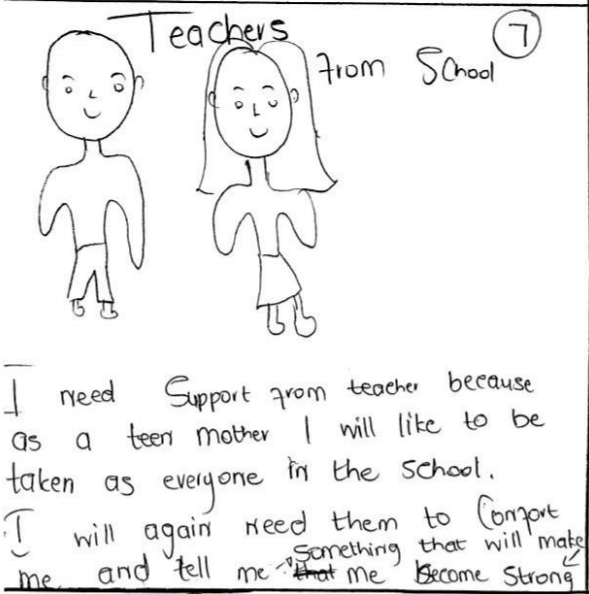 Teachers
from School
7
I need Support from teacher because
as a teen mother I will like to be
taken as everyone in the school.
I will again need them to Comfort
something that will make
me and tell me that me become strong